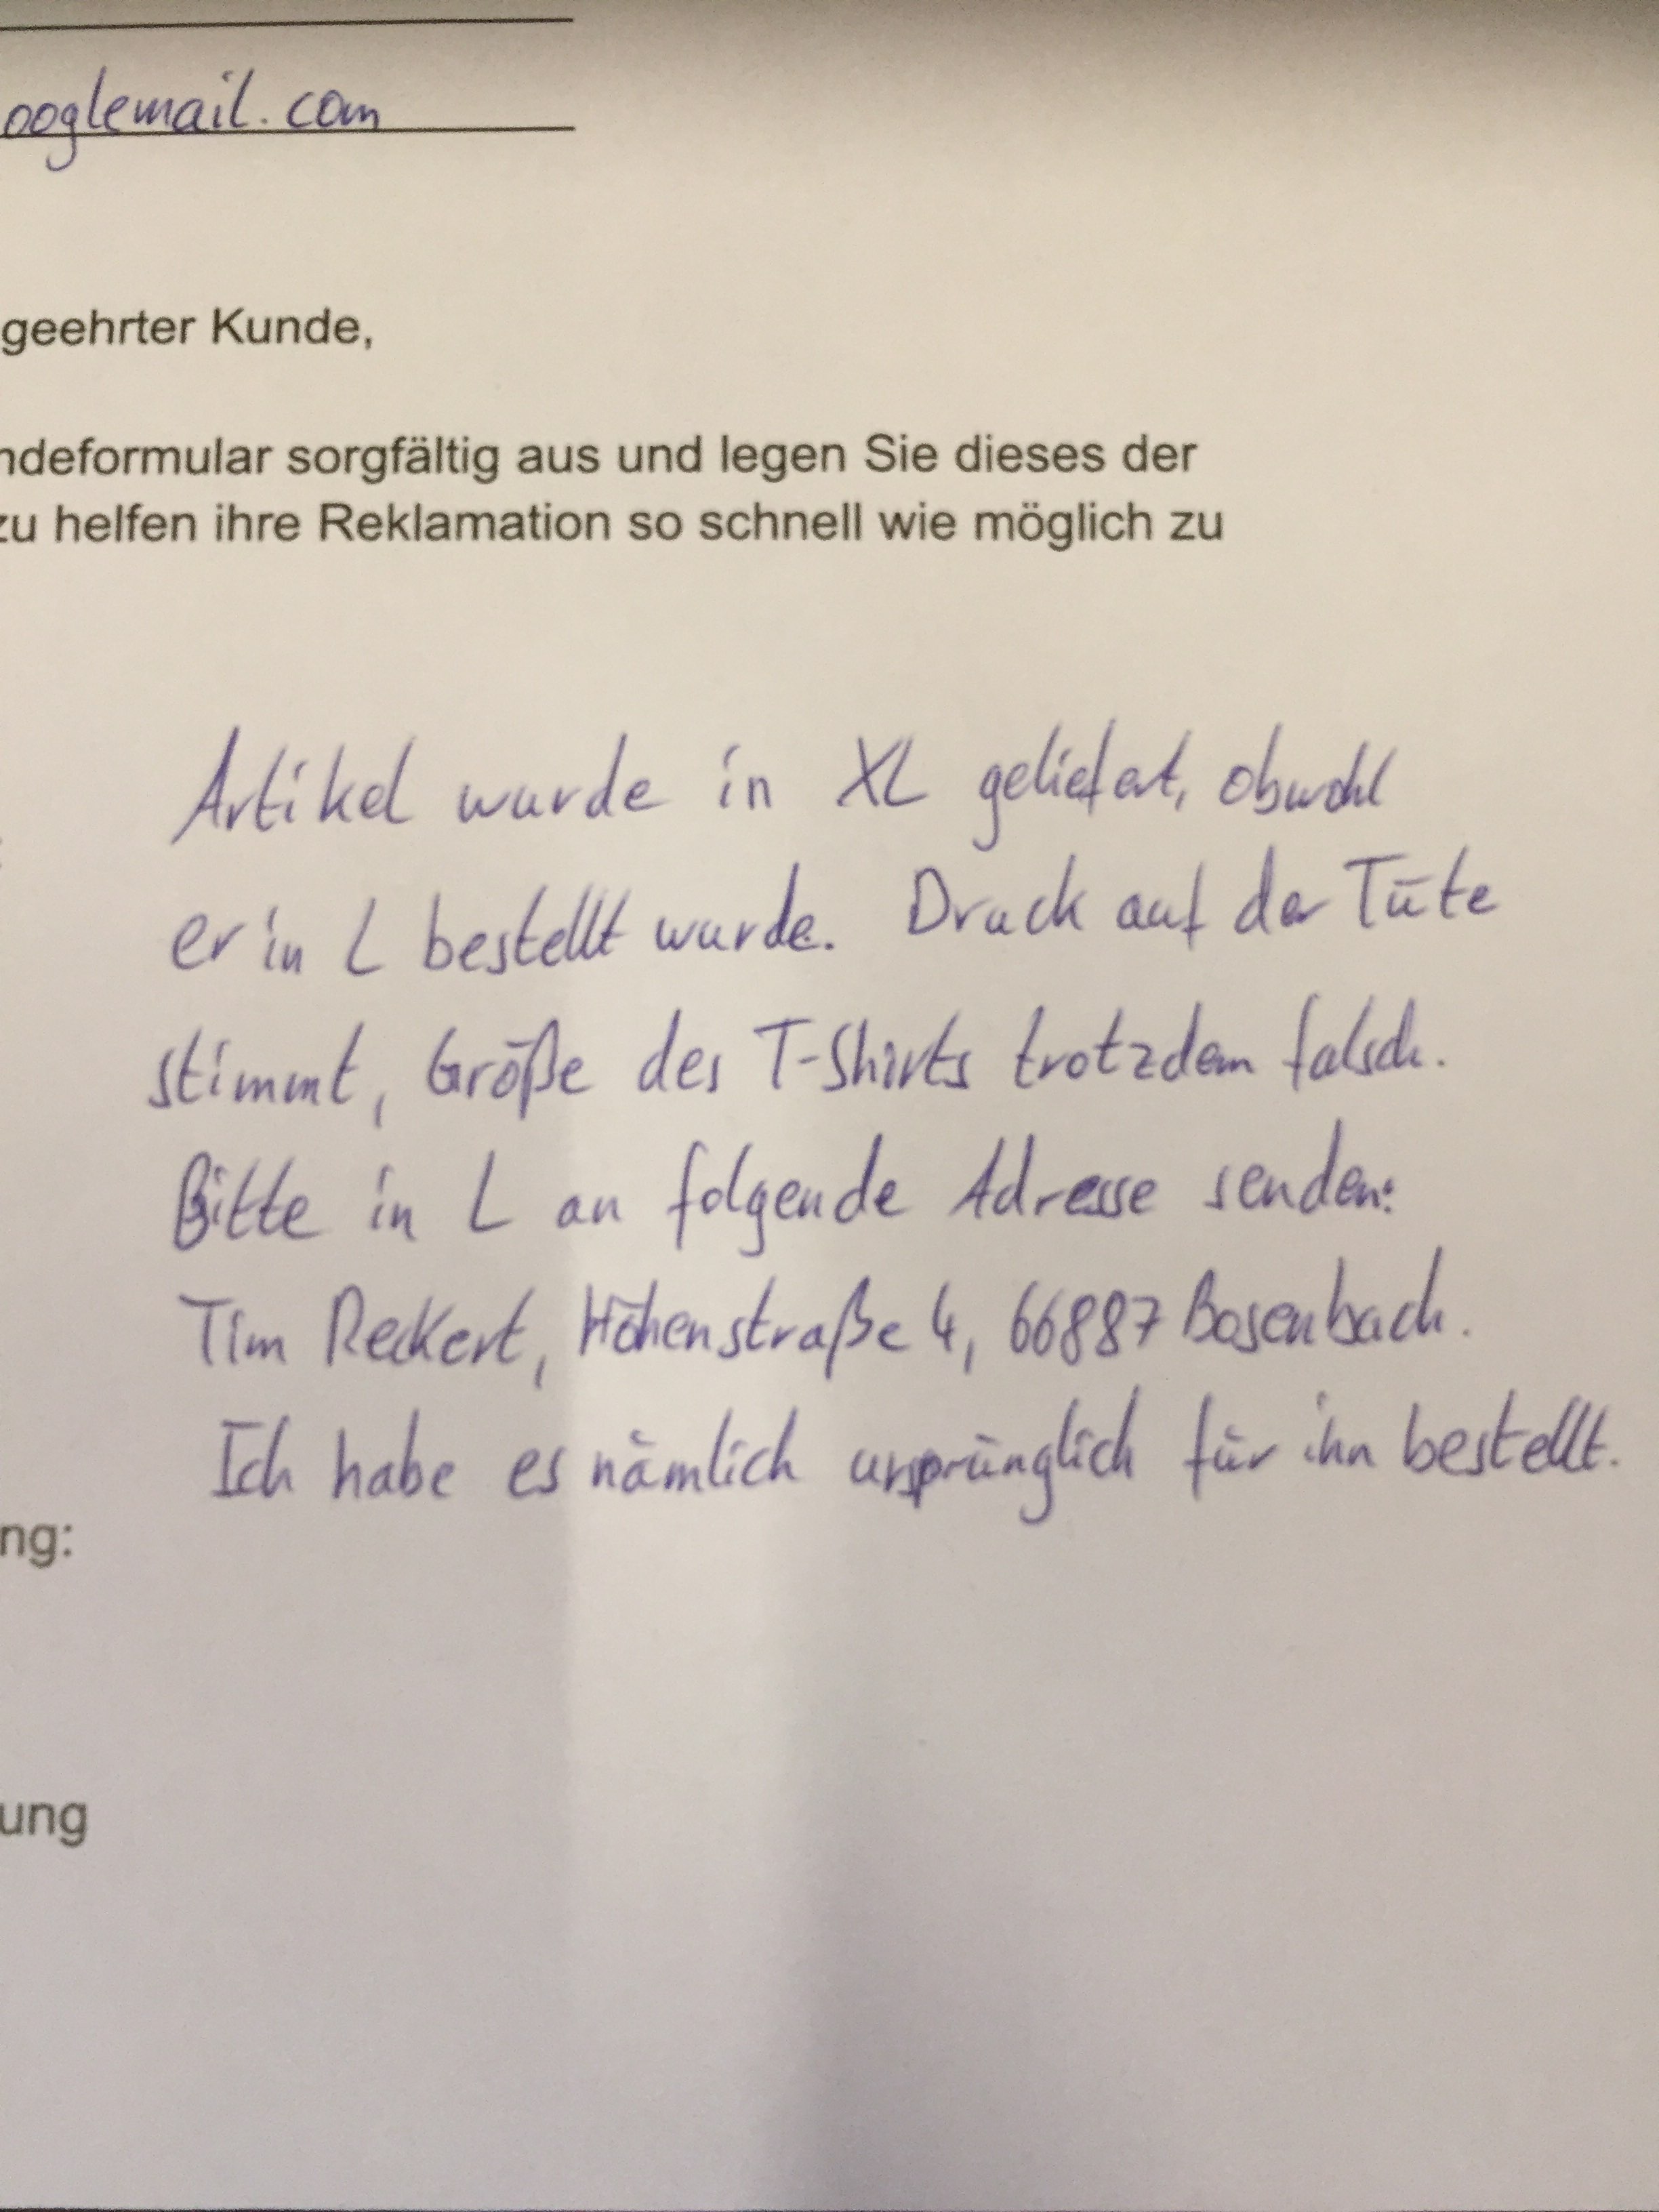 ooglemail.com
geehrter Kunde,
ndeformular sorgfältig aus und legen Sie dieses der
zu helfen ihre Reklamation so schnell wie möglich zu
Artikel wurde in XL geliefert, obwohl
er in L bestellt wurde. Druck auf der Tüte
stimmt, Größe des T-Shirts trotzdem falsch.
Bitte in L an folgende Adresse senden:
Tim Reckert, Höhenstraße 4, 66887 Bosenbach.
Ich habe es nämlich ursprünglich für ihn bestellt.
ng:
ung